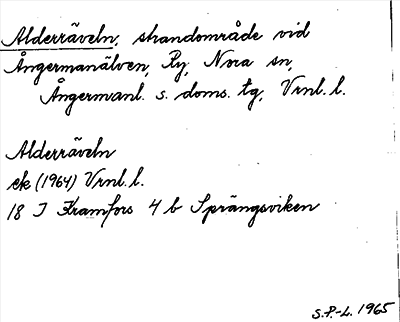 Alderräveln, strandområde vid
Ångermanälven, Ry, Nora sn,
Ångermanl. s. doms. tg, Vrnl. l.
Alderräveln
ek (1964) Vrnl. l.
18 I Kramfors 4 b Sprängsviken
S.P.-L. 1965